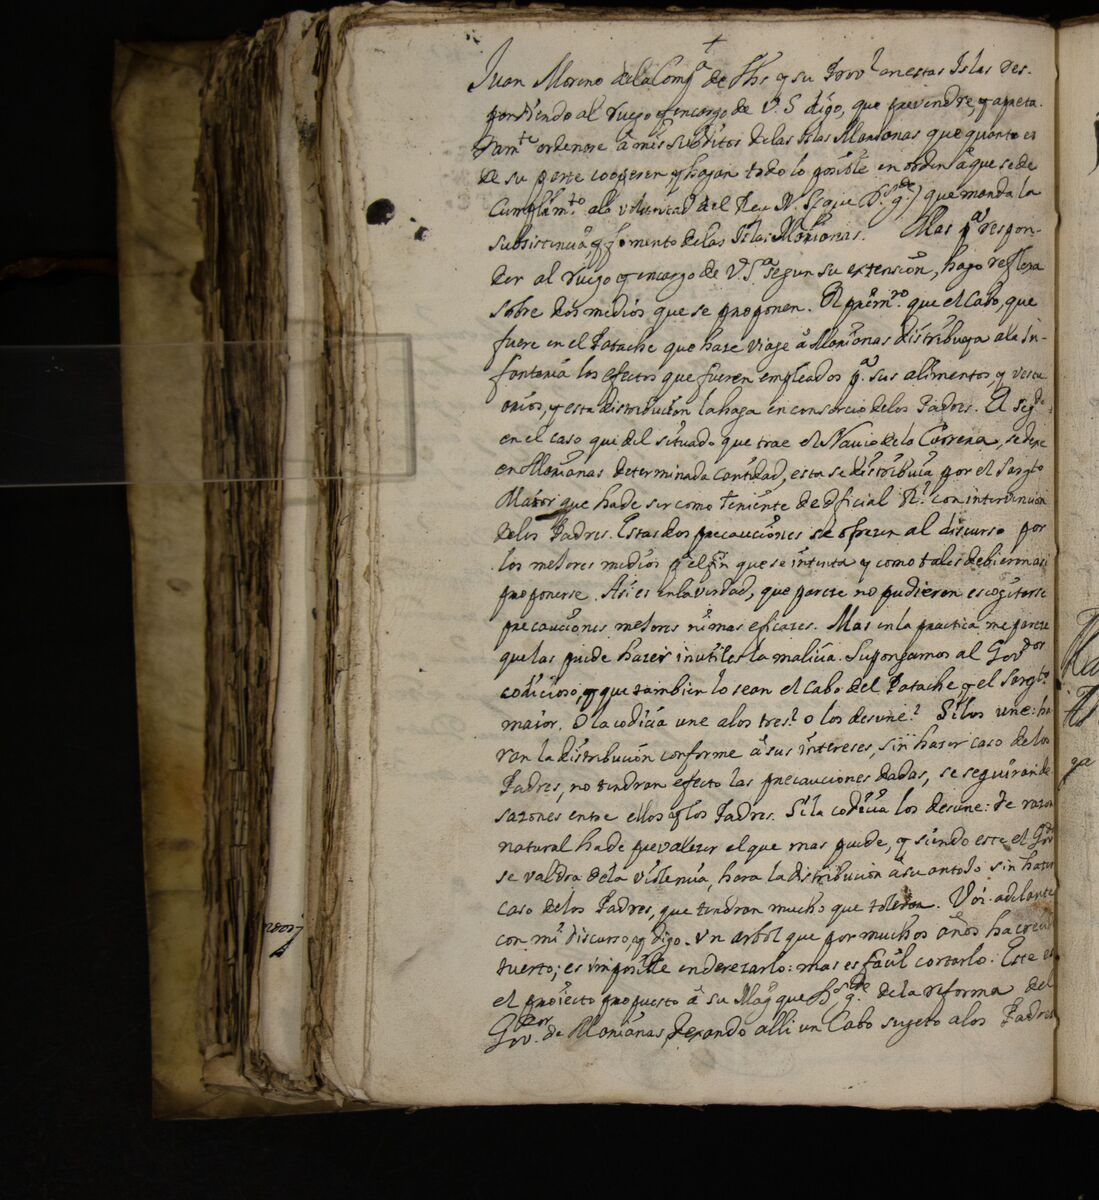 +
Juan Moreno de la Compª de Jhs y su Provˡ en estas Islas res-
pondiendo al ruego y encargo de V. S. digo, que prevendre, y apreta-
damte ordenare à mis subditos de las Islas Marianas que quanto es
de su parte cooperen y hagan todo lo posible en orden à que se de
cumplimto a la voluntad del Rey N. Sr (que Ds gde) que manda la
subsistencia, y fomento de las Islas Marianas. Mas pª respon-
der al ruego y encargo de V. Sª segun su extension, hago reflexa
sobre dos medios que se proponen. El primro que el Cabo, que
fuere en el Patache que haze viage à Marianas distribuya a la In-
fanteria los efectos que fueren empleados pª sus alimentos, y vestu
arios, y esta distribucion la haga en consorcio de los Padres. El segdo
en el caso qui del situado que trae el Navio de la Carrera, se dexe
en Marianas determinada cantidad, esta se distribuia por el Sargto
Maior que ha de ser como Teniente de Oficial Rˡ con intervencion
de los Padres. Estas dos precauciones se ofrezen al discurso por
los mejores medios pª el fin que se intenta y como tales debieron asi
proponerse. Asi es en la verdad, que parece no pudieron escogitarse
precauciones mejores ni mas eficazes. Mas en la practica me pareze
que las puede hazer inutiles la malicia. Supongamos al Govdor
codicioso, y que tambien lo sean el Cabo del Patache y el Sargto
maior. O la codicia une a los tres? o los desune? Si los une: ha
ran la distribucion conforme à sus intereses, sin hazer caso de los
Padres, no tendran efecto las precauciones dadas, se seguiran de
sazones entre ellos y los Padres. Si la codicia los desune: de razon
natural ha de prevalezer el que mas puede, y siendo este el Govr
se valdra de la violencia, hara la distribucion à su antojo sin hazer
caso de los Padres, que tendran mucho que tolerar. Voi adelante
con mi discurso, y digo. Un arbol que por muchos años ha crecido
tuerto; es imposible enderezarlo: mas es facil cortarlo. Este es
el proiecto propuesto à su Magd que Ds gde de la reforma del
Govor de Marianas, dexando alli un Cabo sujeto a los Padres